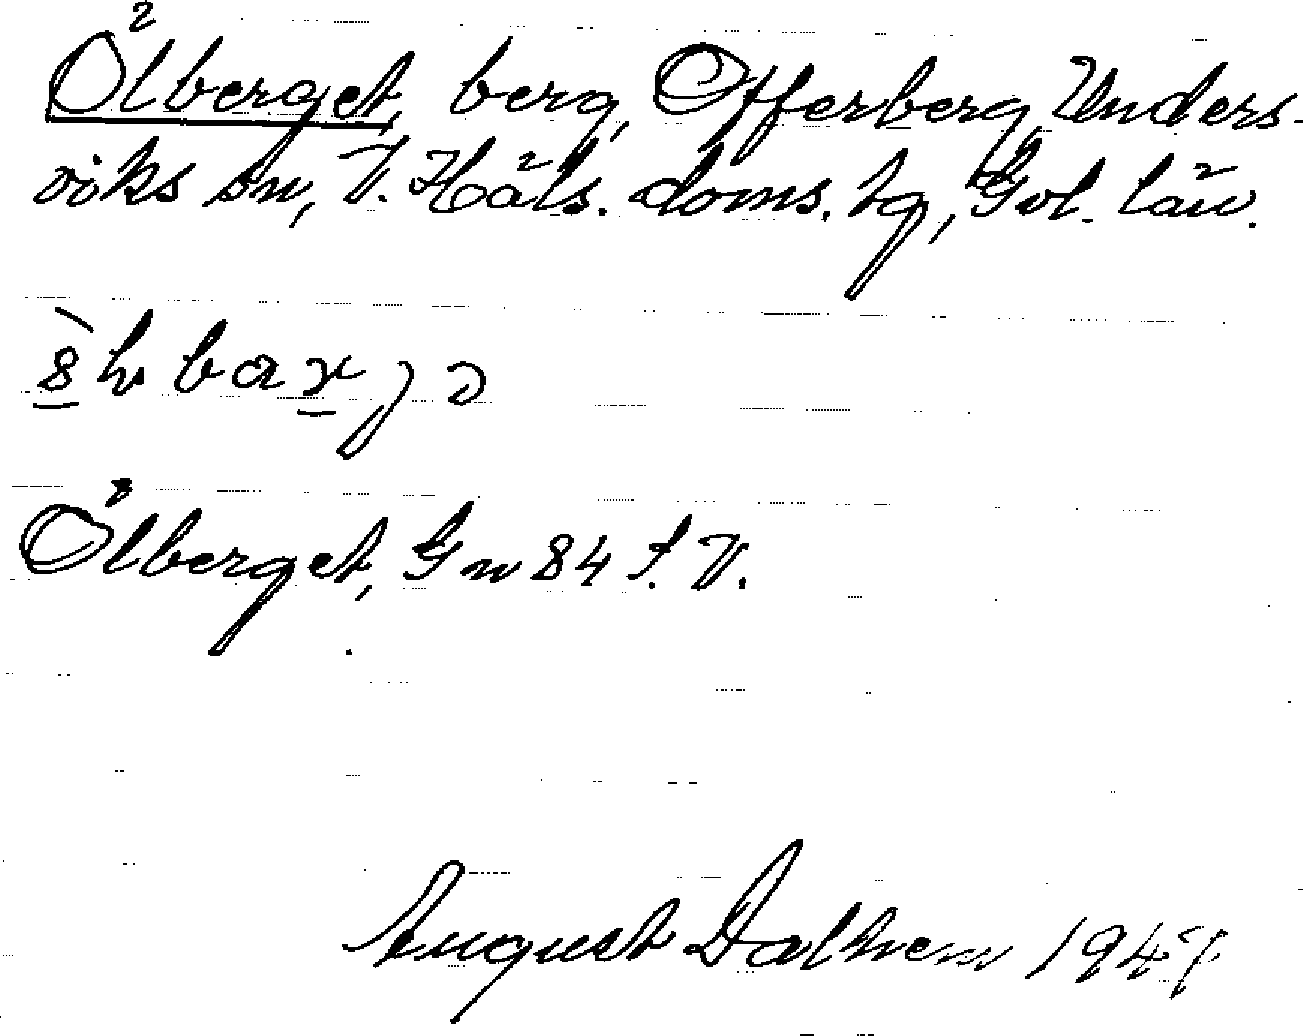 Ölberget, berg, Offerberg, Unders-
viks sn, V. Häls. doms. hg, Gvl. län.
Ölberget, Gn 84 s. V.
August Dalhem